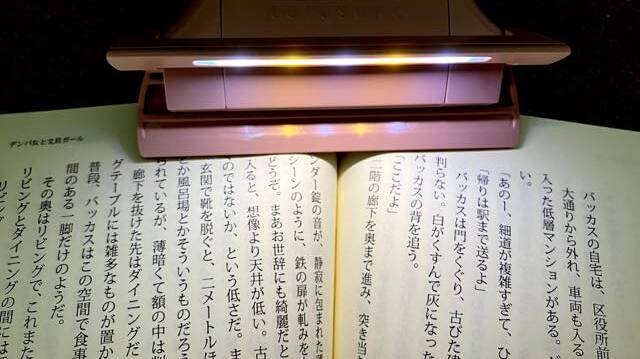 バッカスの自宅は、区役所前
大通りから外れ、車両も入る
入った低層マンションがある。
「あのー、細道が複雑すぎて、ひ
「帰りは駅まで送るよ」
バッカスは門をくぐり、古びた建
判らない。白がくすんで灰になった
バッカスの背を追う。
「ここだよ」
一階の廊下を奥まで進み、突き当
ンダー錠の音が、静寂に包まれた
シーンのように、鉄の扉が軋みを
どうぞ。まあお世辞にも綺麗だと
入ると、想像より天井が低い。古
のではないか、という低さだ。ま
玄関で靴を脱ぐと、二メートルほ
とか風呂場とかそういうものだろ
られているが、薄暗くて額の中は
廊下を抜けた先はダイニングだ
グテーブルには雑多なものが置か
普段、バッカスはこの空間で食事
間のある一脚だけのようだ。
その奥はリビングで、これまた
リビングとダイニングの間には
デンパ女と文具ガール